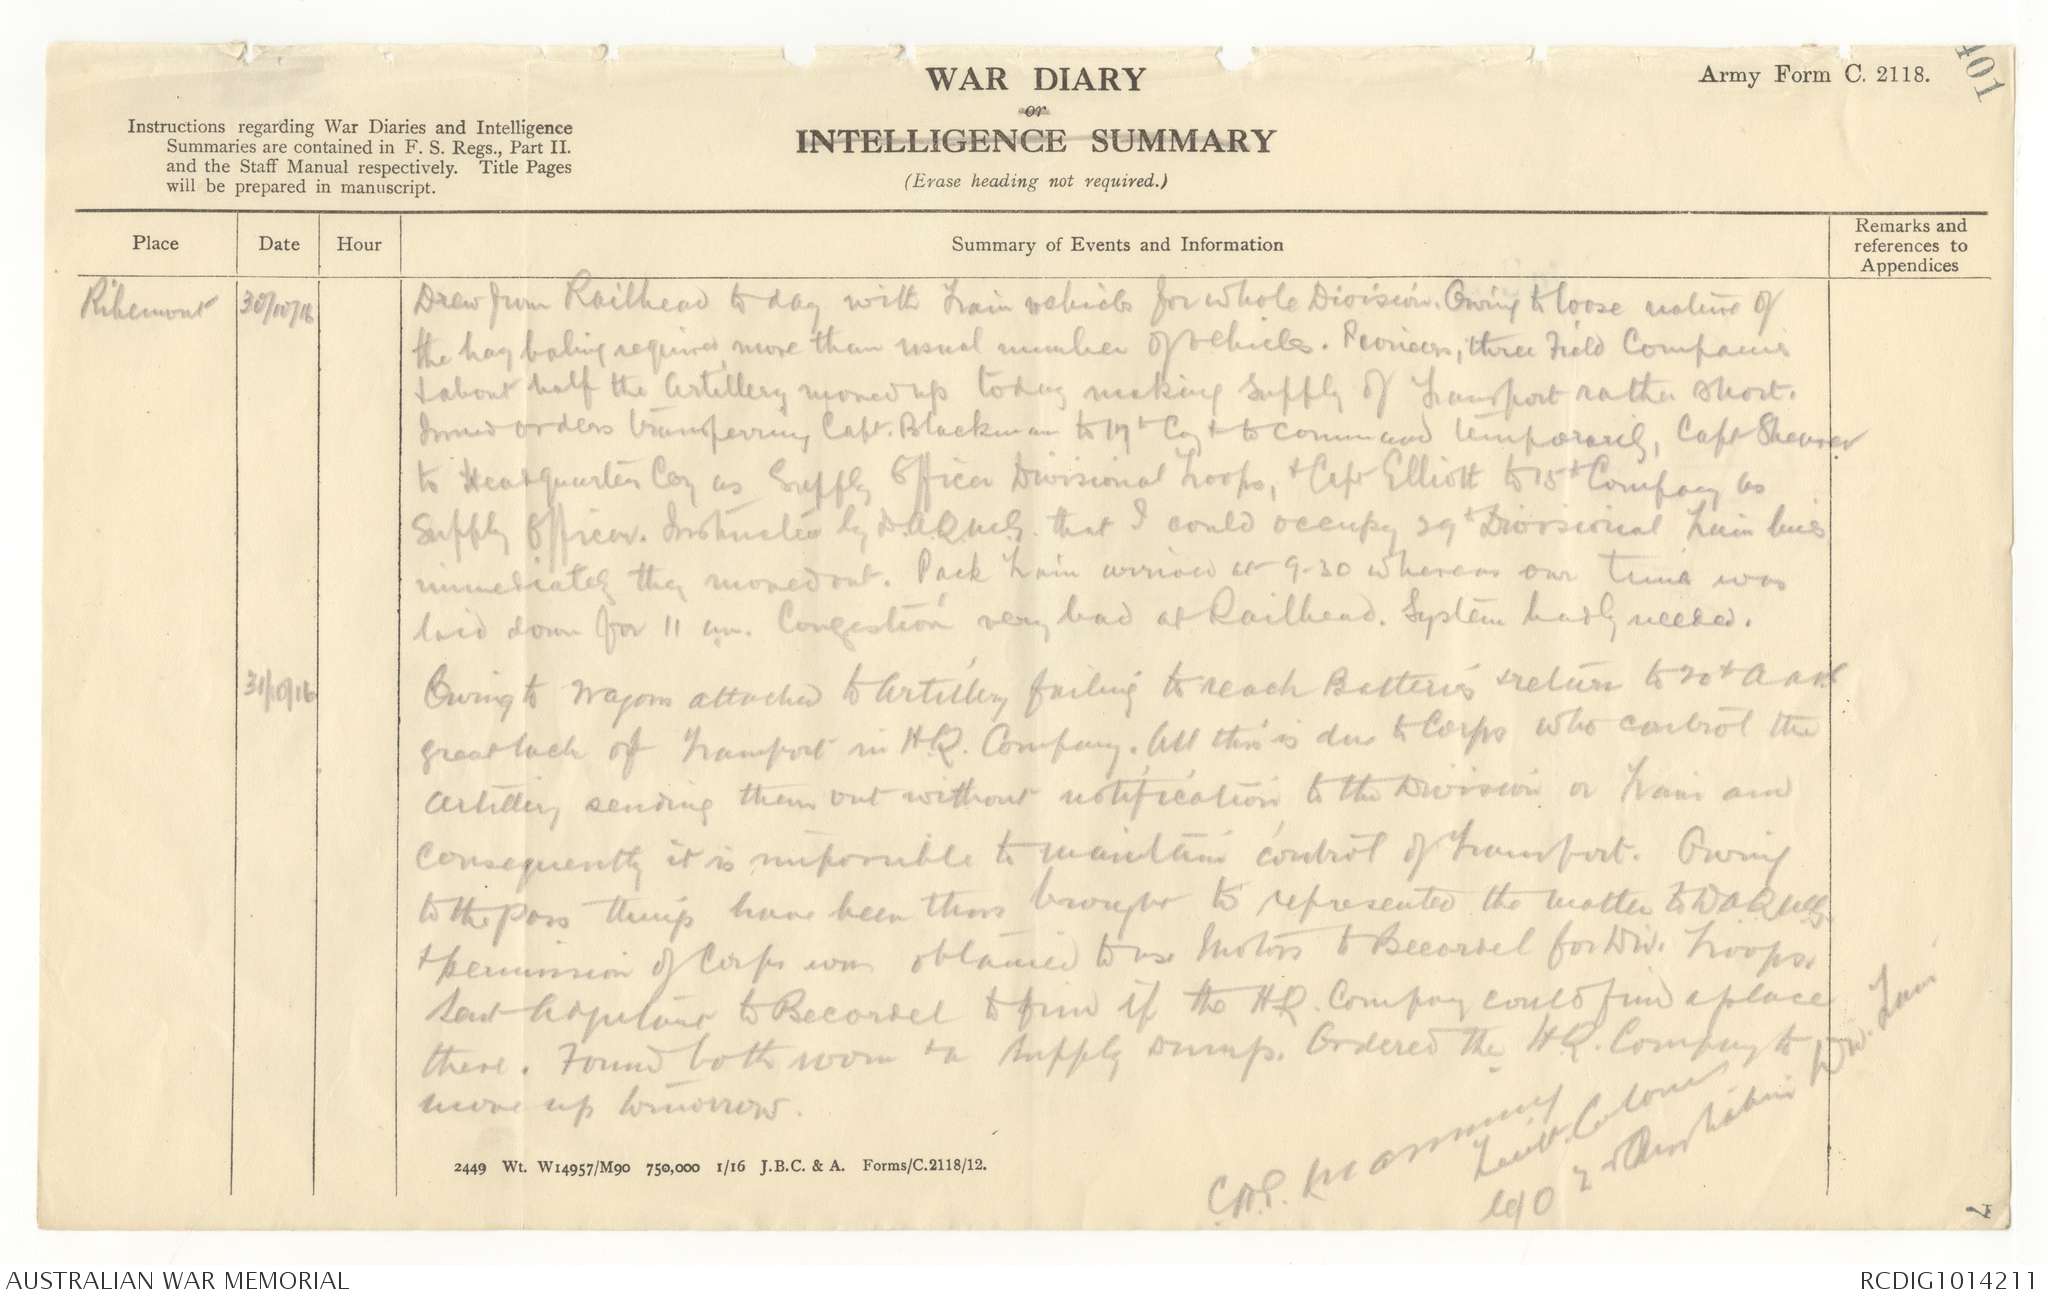 401
WAR DIARY
or
INTELLIGENCE SUMMARY
(Erase heading not required.)
Army Form C. 2118.
Instructions regarding War Diaries and Intelligence
Summaries are contained in F. S. Regs., Part II.
and the Staff Manual respectively. Title Pages
will be prepared in manuscript.
Place
Date
Hour
Summary of Events and Information
Remarks and
references to
Appendices
Ribemont 30/10/16 Drew from Railhead today with Train vehicles for whole Division. Owing to loose nature of
the hay baling required more than usual number of vehicles. Pioneers, three Field Companies
& about half the Artillery moved up today making supply of Transport rather short.
Issued orders transferring Capt. Blackman to 17th Coy & to command temporarily, Capt
to Headquarters Coy as Supply Officer Divisional Troops, & Capt Elliott to 15th Company as
Supply Officer. Instructed by D.A.Q.M.G. that I could occupy 29th Divisional Train lines
immediately they moved out. Pack Train arrived at 9.30 whereas our time was
laid down for 11 am. Congestion very bad at Railhead. System badly needed.
31/10/16 Owing to Wagons attached to Artillery failing to reach Batteries & return to 20th
great lack of Transport in H.Q. Company. All this is due to Corps who control the
Artillery sending them out without notification to the Division or Train and
consequently it is impossible to maintain control of Transport. Owing
to the pass things have been thus brought to represented the matter to D.A.Q.M.G.
& permission of Corps was obtained to use Motors to Becordel for Div. Troops.
Sent Adjutant to Becordel to find if the H.Q. Company could find a place
there. Found both room & a supply dump. Ordered the H.Q. Company to
move up tomorrow.
Lieut. Colonel
C.O 2nd Australian Div. Train
2449 Wt. W14957/M90 750,000 1/16 J.B.C. & A. Forms/C.2118/12.
AUSTRALIAN WAR MEMORIAL
RCDIG1014211